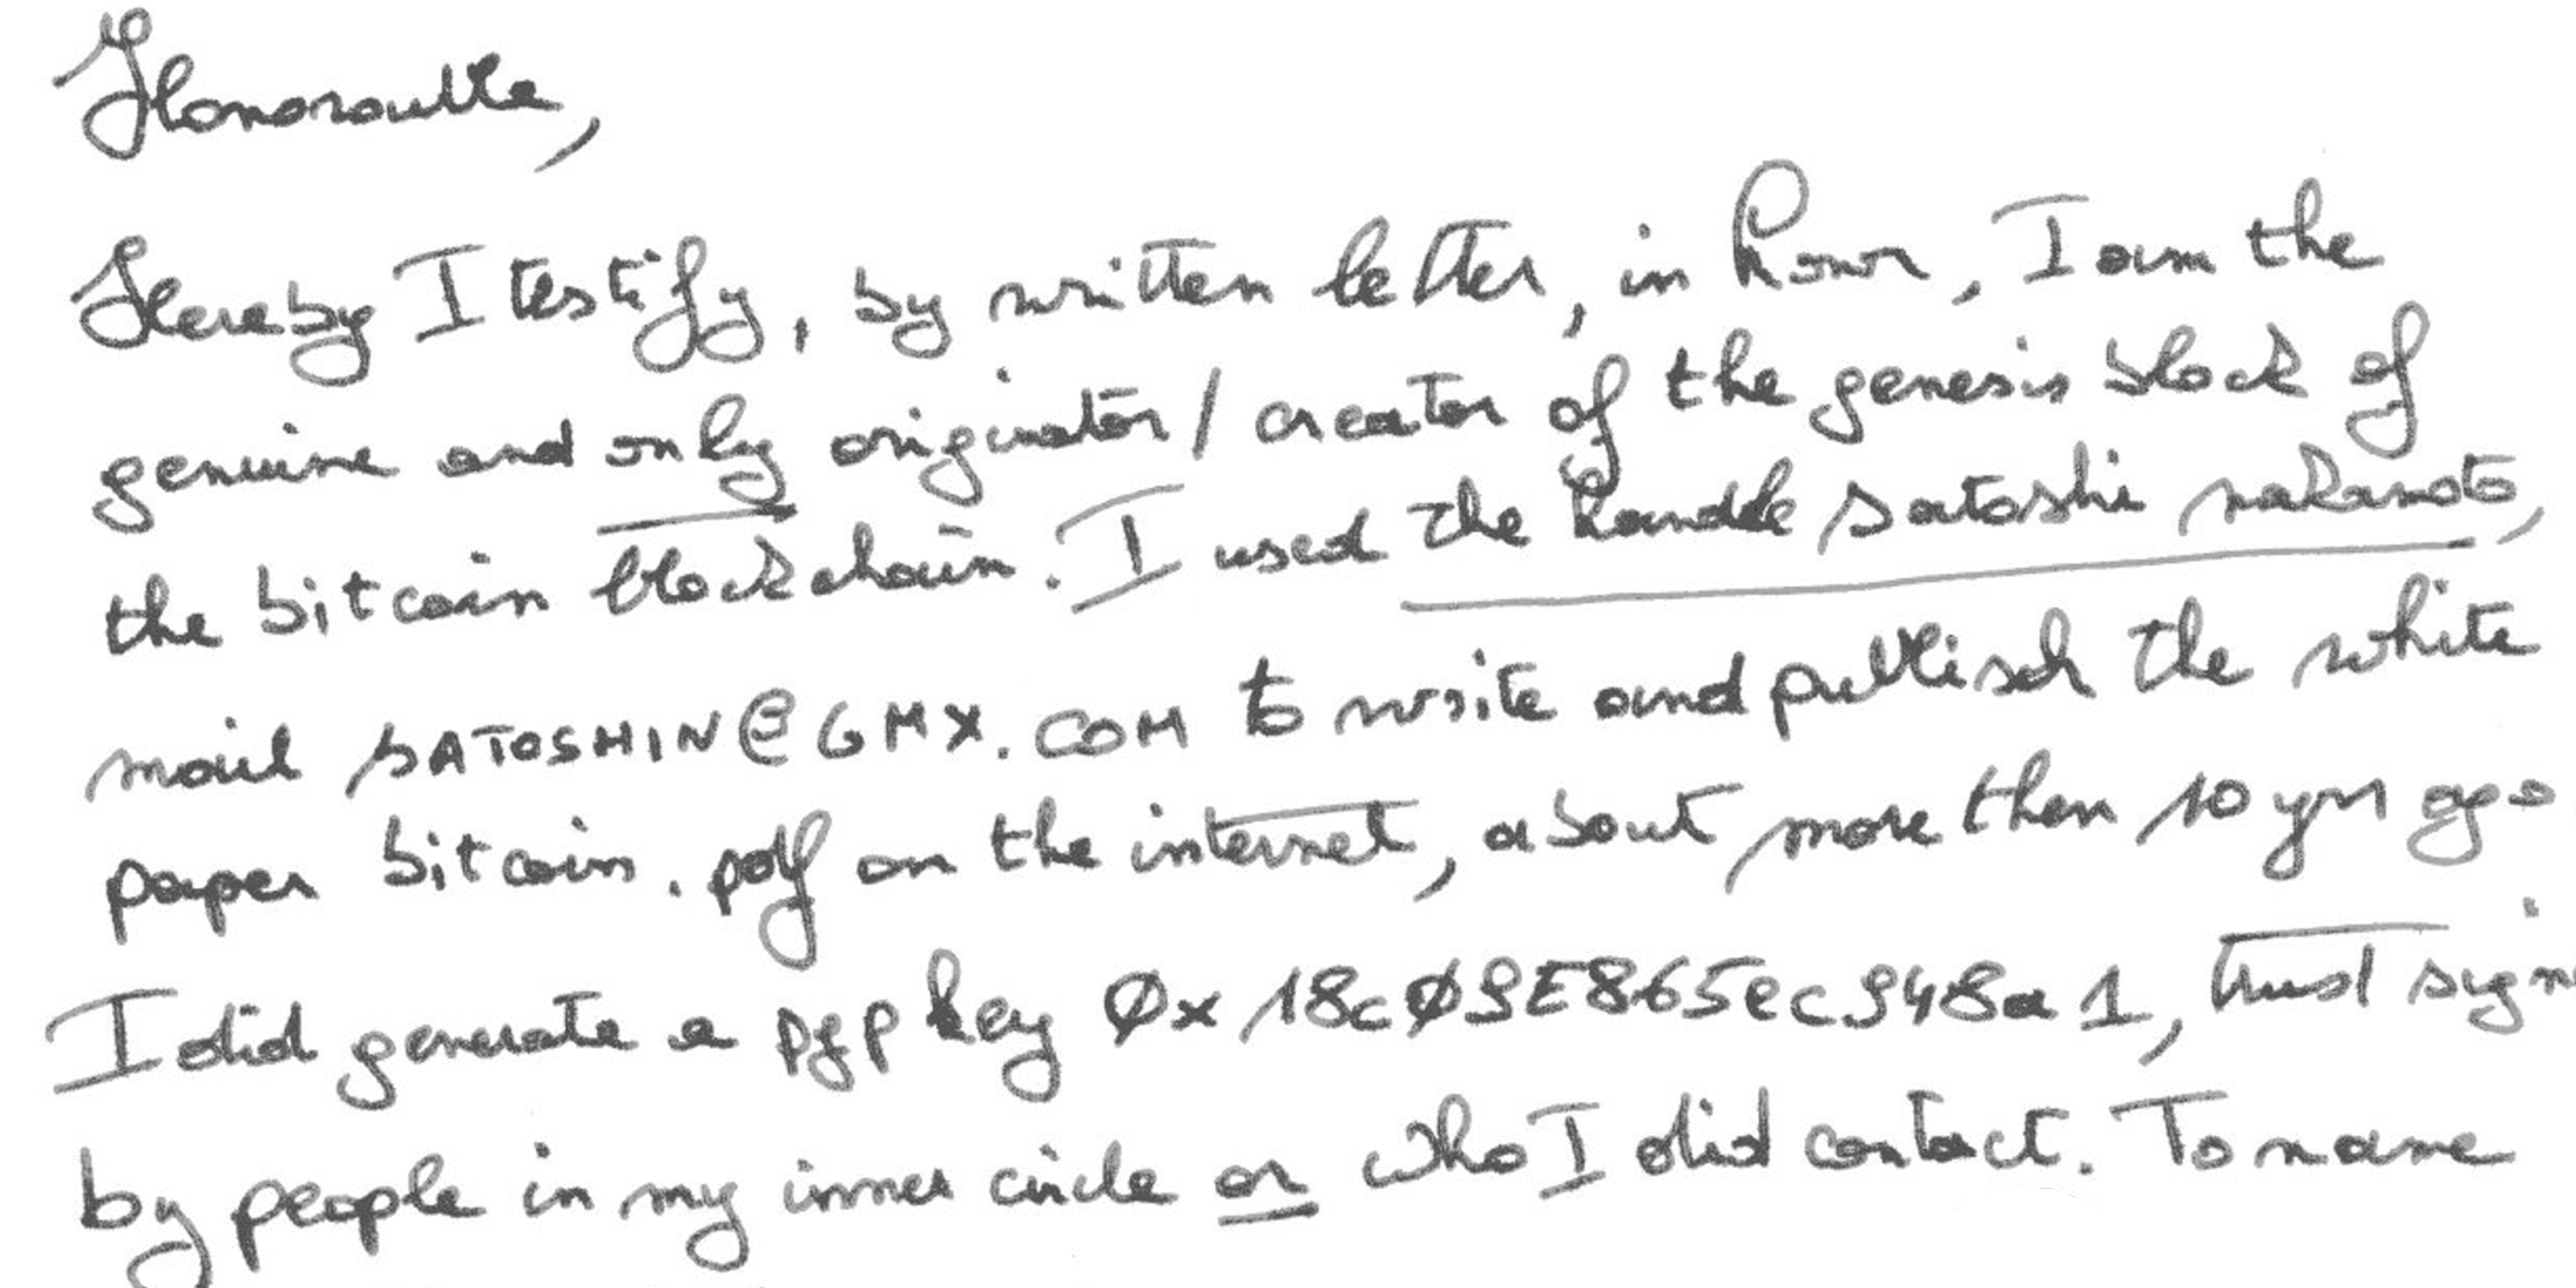 Honorouble,
Hereby I testify, by written letter, in honor, I am the
genuine and only originator/ creator of the genesis block of
the bitcoin blockchain. I used the handle satoshi nakamoto,
mail SATOSHIN@GMX.COM to write and publisch the white
paper bitcoin.pdf on the internet, about more then 10 yrs ago
I did generate a pgp key 0x18c09E865ec948a1, trust sign
by people in my inner circle or who I did contact. To name